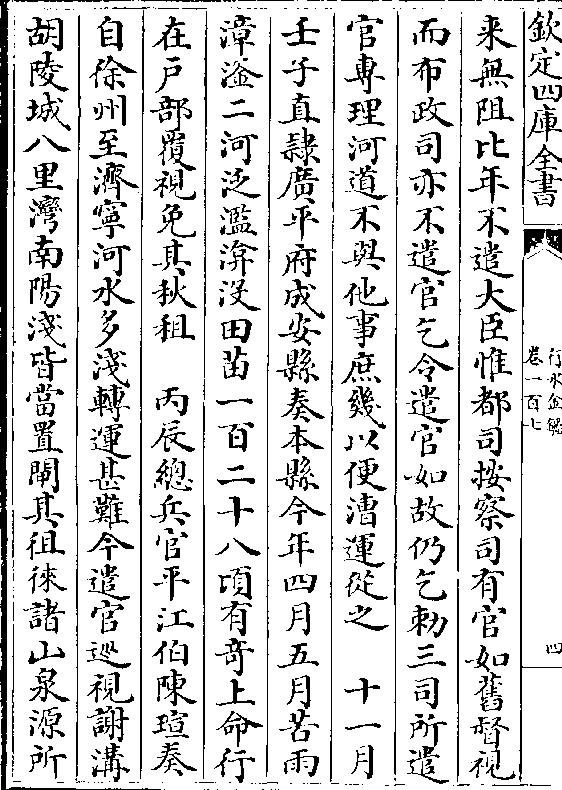 欽定四庫全書
行水金鑑
卷一百七
四
来無阻比年不遣大臣惟都司按察司有官如舊督視
而布政司亦不遣官乞令遣官如故仍乞勅三司所遣
官專理河道不與他事庶幾以便漕運從之　十一月
壬子直隸廣平府成安縣奏本縣今年四月五月苦雨
漳滏二河泛濫渰没田苗一百二十八頃有奇上命行
在戸部覆視免其秋租　丙辰總兵官平江伯陳瑄奏
自徐州至濟寧河水多淺轉運甚難今遣官廵視謝溝
胡陵城八里灣南陽淺皆當置閘其徂徠諸山泉源所